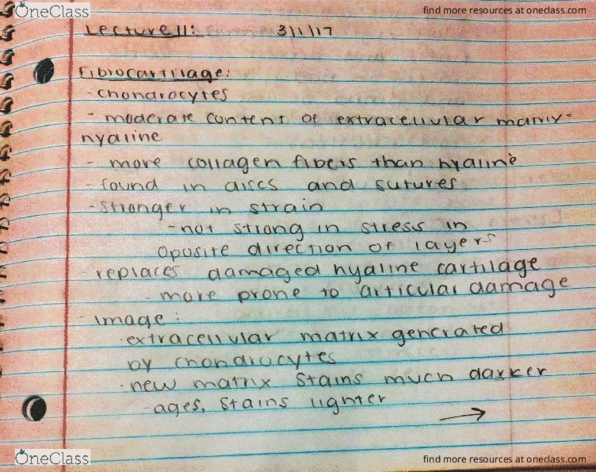 OneClass
find more resources at oneclass.com
Lecture 11: 3/1/17
Fibrocartilage:
- chondrocytes
- moderate content of extracellular
hyaline
- more collagen fibers than hyaline
- found in discs and sutures
- stronger in strain
- not strong in stress in
oposite direction of layers
- replaces damaged hyaline cartilage
- more prone to articular damage
- Image:
· extracellular matrix generated
by chondrocytes
· new matrix stains much darker
- ages, stains lighter
→
OneClass
find more resources at oneclass.com